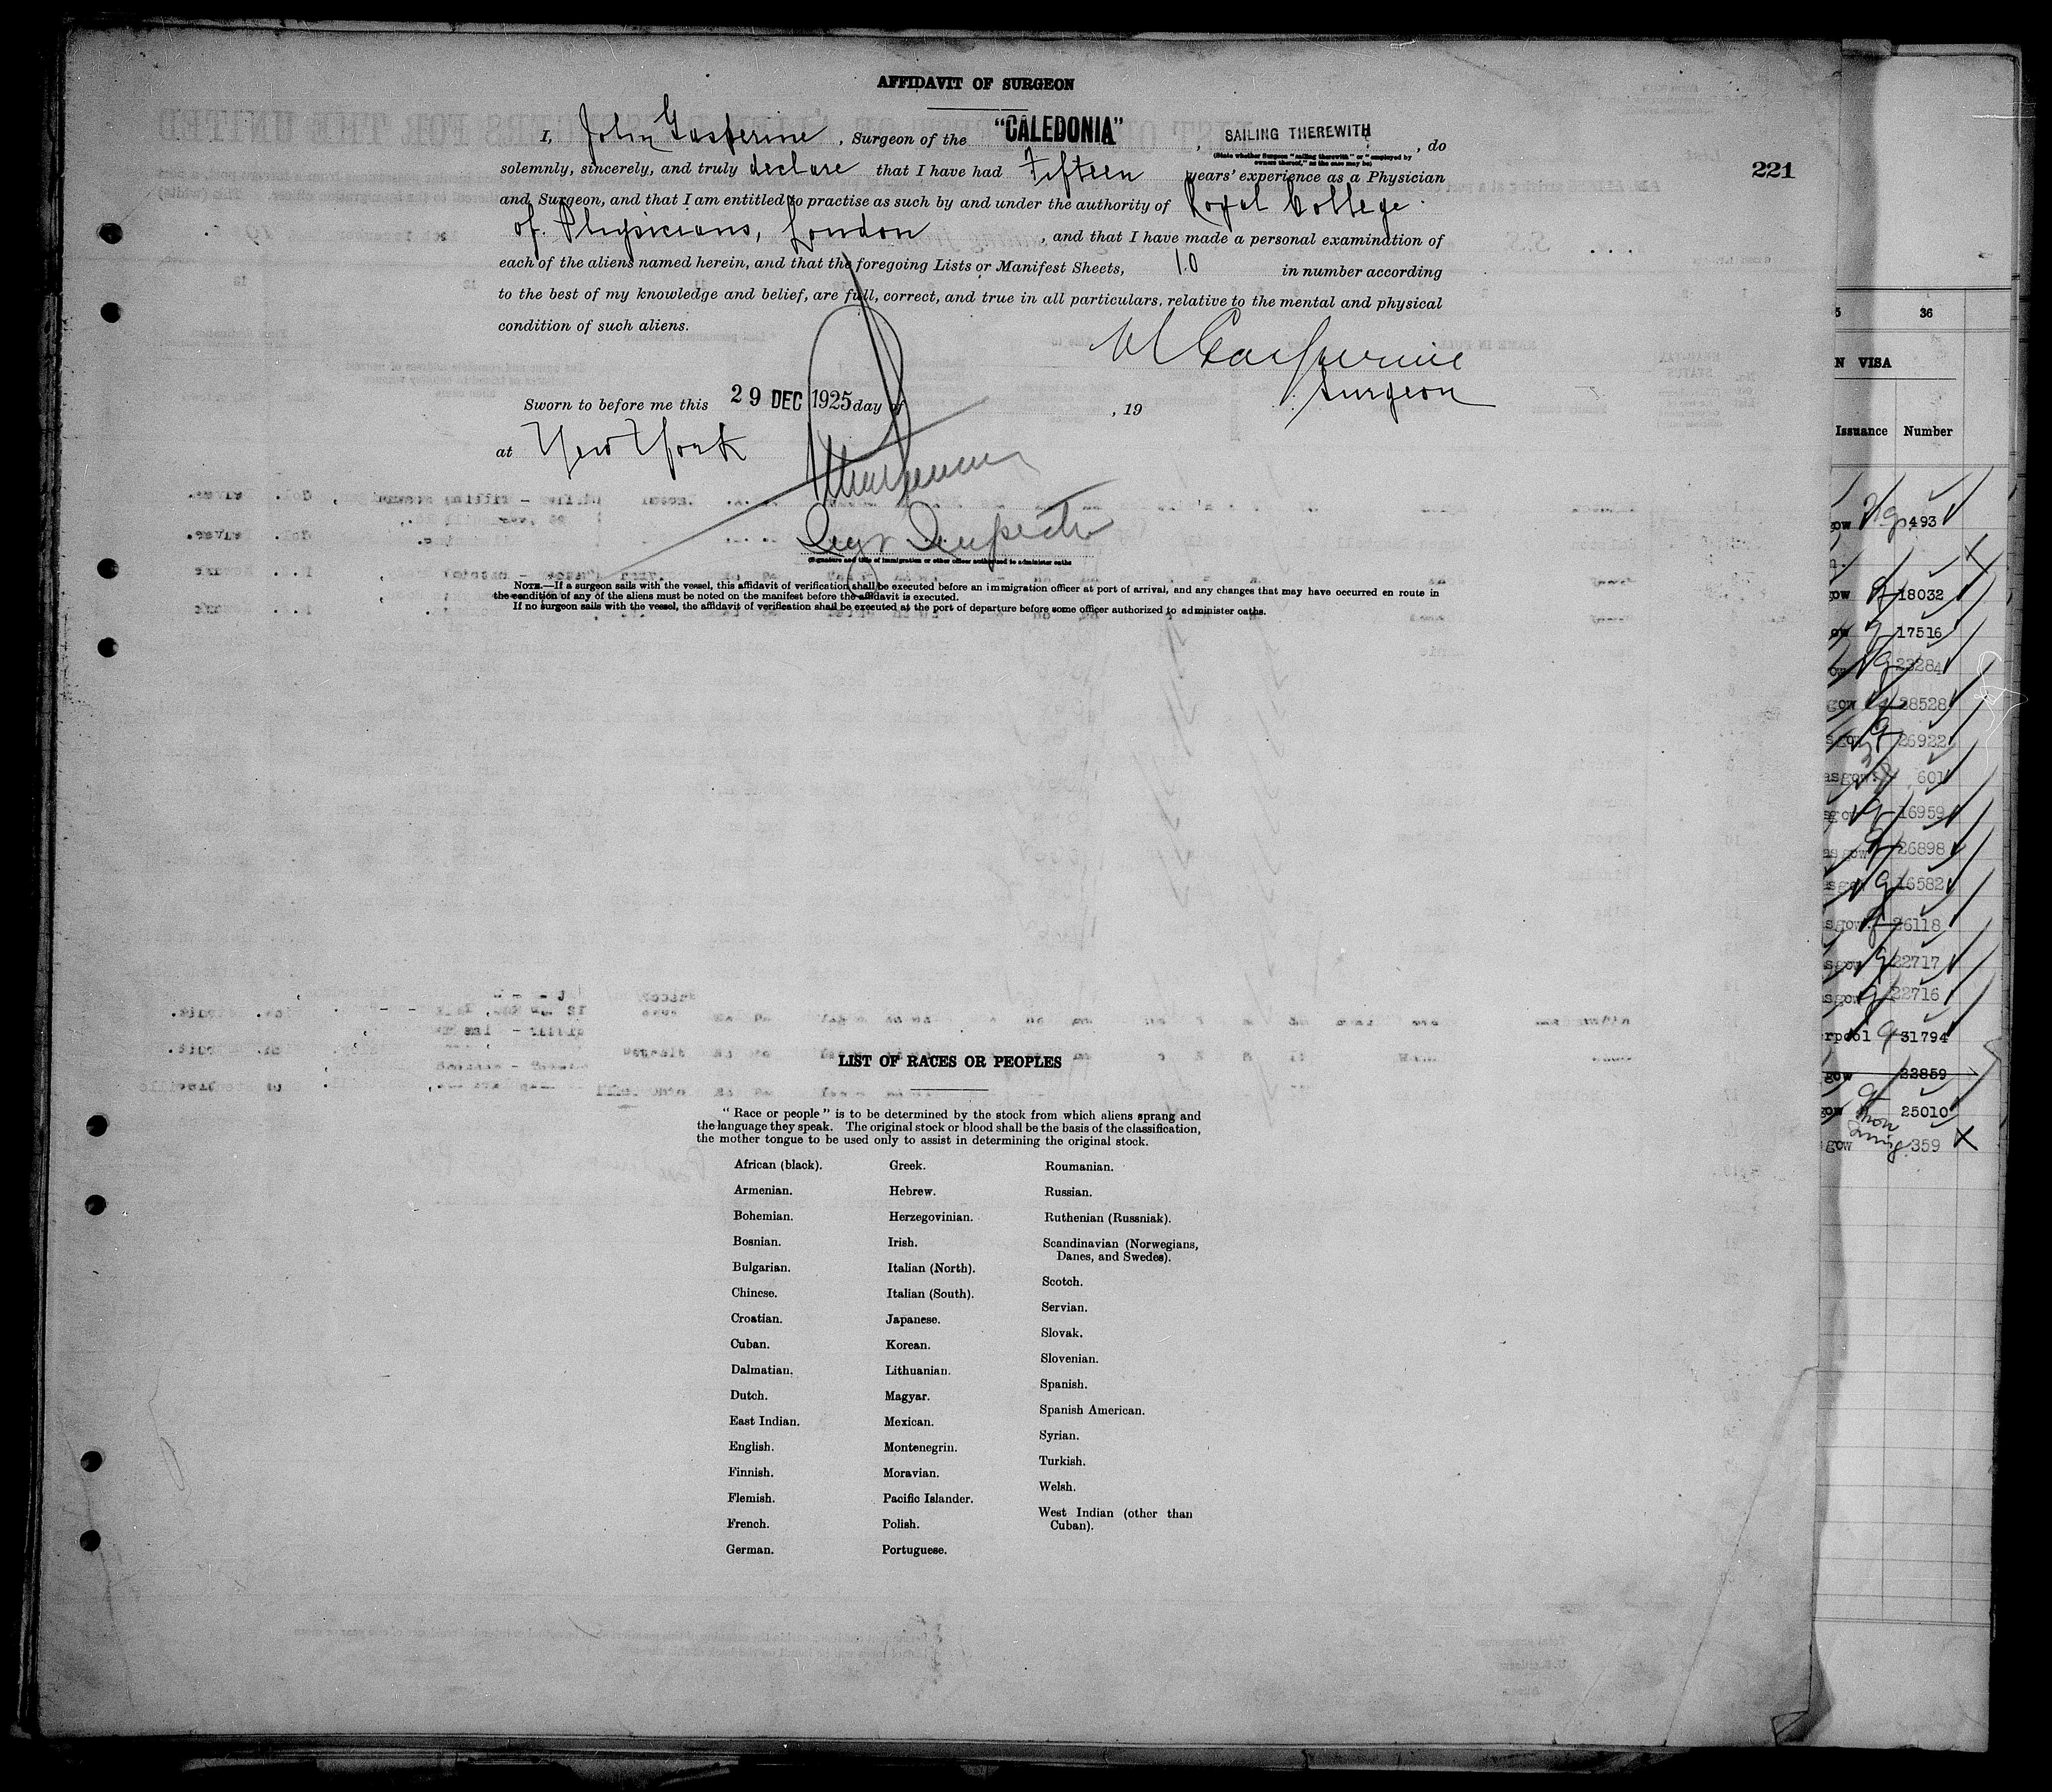 AFFIDAVIT OF SURGEON
I, John Gasperine, Surgeon of the "CALEDONIA", SAILING THEREWITH, do
(State whether Surgeon "sailing therewith" or "employed by owners thereof," as the case may be)
221
solemnly, sincerely, and truly declare that I have had Fifteen years' experience as a Physician
and Surgeon, and that I am entitled to practise as such by and under the authority of Royal College
of Physicians, London, and that I have made a personal examination of
each of the aliens named herein, and that the foregoing Lists or Manifest Sheets, 10 in number according
to the best of my knowledge and belief, are full, correct, and true in all particulars, relative to the mental and physical
condition of such aliens.
Gasperine
Surgeon
Sworn to before me this 29 DEC 1925 day of , 19
at New York
(Signature and title of immigration or other officer authorized to administer oaths
NOTE.—If a surgeon sails with the vessel, this affidavit of verification shall be executed before an immigration officer at port of arrival, and any changes that may have occurred en route in
the condition of any of the aliens must be noted on the manifest before the affidavit is executed.
If no surgeon sails with the vessel, the affidavit of verification shall be executed at the port of departure before some officer authorized to administer oaths.
LIST OF RACES OR PEOPLES
"Race or people" is to be determined by the stock from which aliens sprang and
the language they speak. The original stock or blood shall be the basis of the classification,
the mother tongue to be used only to assist in determining the original stock.
African (black).
Armenian.
Bohemian.
Bosnian.
Bulgarian.
Chinese.
Croatian.
Cuban.
Dalmatian.
Dutch.
East Indian.
English.
Finnish.
Flemish.
French.
German.
Greek.
Hebrew.
Herzegovinian.
Irish.
Italian (North).
Italian (South).
Japanese.
Korean.
Lithuanian.
Magyar.
Mexican.
Montenegrin.
Moravian.
Pacific Islander.
Polish.
Portuguese.
Roumanian.
Russian.
Ruthenian (Russniak).
Scandinavian (Norwegians,
Danes, and Swedes).
Scotch.
Servian.
Slovak.
Slovenian.
Spanish.
Spanish American.
Syrian.
Turkish.
Welsh.
West Indian (other than
Cuban).
5 36
N VISA
Issuance Number
gow 493
gow 18032
ow 17516
ow 23284
gow 28528
sgow 26922
asgow. 601
sgow 16959
asgow 26898
asgow 16582
asgow. 26118
sgow 22717
asgow 22716
rpool 31794
gow 22859
gow 25010
gow 359